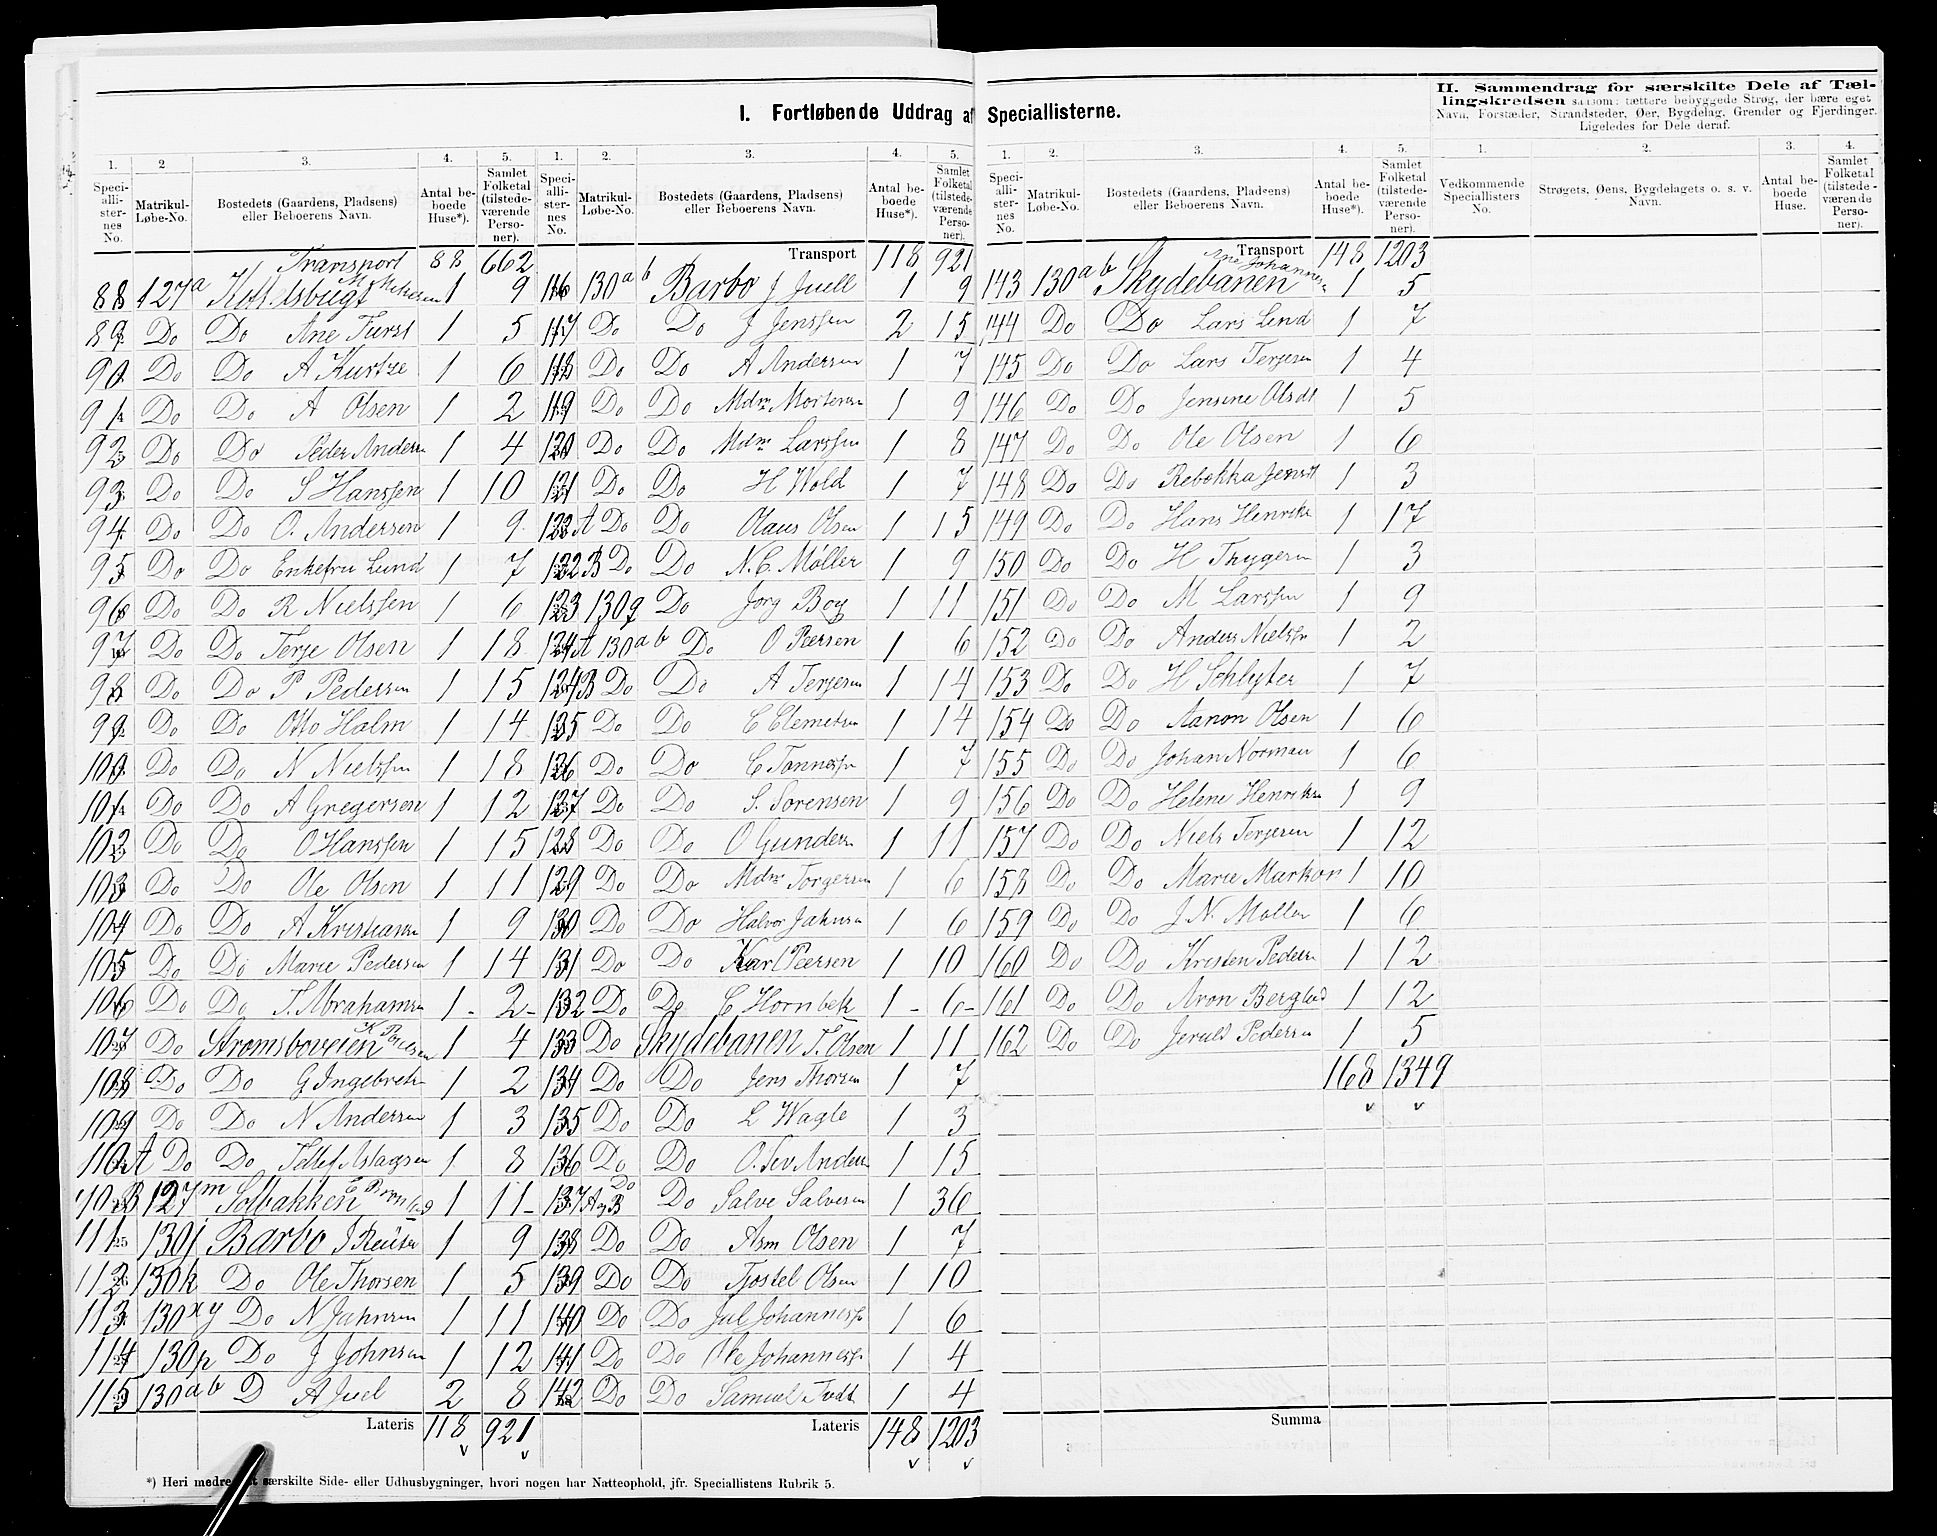 I. Fortløbende Uddrag af Speciallisterne.
II. Sammendrag for særskilte Dele af Tæl-
lingskredsen saasom: tættere bebyggede Strøg, der bære eget
Navn, Forstæder, Strandsteder, Øer, Bygdelag, Grender og Fjerdinger.
Ligeledes for Dele deraf.
1. 2 3. 4. 5.
Speciallisternes No. Matrikul-Løbe-No. Bostedets (Gaardens, Pladsens) eller Beboerens Navn. Antal beboede Huse*). Samlet Folketal (tilstedeværende Personer).
Transport 88 662
88 127a Kittelsbugt 1 9
89 Do Do Ane Furst 1 5
90 Do Do A Kurtze 1 6
91 Do Do A Olsen 1 2
92 Do Do Peder Andersn 1 4
93 Do Do S Hanssen 1 10
94 Do Do O. Andersen 1 9
95 Do Do Enkefru Lund 1 7
96 Do Do R Nielssen 1 6
97 Do Do Terje Olsen 1 18
98 Do Do P Pedersen 1 15
99 Do Do Otto Holm 1 14
100 Do Do N Nielssen 1 18
101 Do Do A Gregersen 1 12
102 Do Do O Hanssen 1 15
103 Do Do Ole Olsen 1 11
104 Do Do A Kristiansen 1 9
105 Do Do Marie Pedersen 1 14
106 Do Do T. Abrahamsen 1 - 2 -
107 Do Stromsboveien 1 4
108 Do Do G Ingebretsn 1 2
109 Do Do N Andersen 1 3
110 A Do Do Tellef Aslagsen 1 8
110 B 127m Solbakken 1 11 -
111 130j Barbo J Reuter 1 9
112 130k Do Ole Thorsen 1 5
113 130xy Do N Jahnsen 1 11
114 130p Do J Johnsen 1 12
115 130ab D A Juel 2 8
Lateris 118 921
1. 2. 3. 4. 5.
Speciallisternes No. Matrikul-Løbe-No. Bostedets (Gaardens, Pladsens) eller Beboerens Navn. Antal beboede Huse*). Samlet Folketal (tilstedeværende Personer).
Transport 118 921
116 130ab Barbo J Juell 1 9
117 Do Do J Jenssen 2 15
118 Do Do A Andersen 1 7
119 Do Do Mdm Mortensen 1 9
120 Do Do Mdm Larssen 1 8
121 Do Do H Wold 1 7
122 A Do Do Olaus Olsen 1 15
122 B Do Do N. C. Møller 1 9
123 130q Do Jørg Boy 1 11
124 A 130ab Do O Peersen 1 6
124 B Do Do A Terjesen 1 14
125 Do Do C Clemetsen 1 14
126 Do Do C Tønnessen 1 7
127 Do Do S. Sørensen 1 9
128 Do Do O Gundersn 1 11
129 Do Do Mdm Torgersen 1 6
130 Do Do Halvor Jahnsen 1 6
131 Do Do Karl Peersen 1 10
132 Do Do C Hornbek 1 - 6 -
133 Do Skydebanen T. Olsen 1 11
134 Do Do Jens Thorsen 1 7
135 Do Do L Wagle 1 3
136 Do Do O. Sev Andersn 1 15
137 A og B Do Do Salve Salvesen 1 36
138 Do Do Asm Olsen 1 7
139 Do Do Tjostel Olsen 1 10
140 Do Do Jul Johannessen 1 6
141 Do Do Ole Johannessn 1 4
142 Do Do Samuel Tvdt 1 4
Lateris 148 1203
1. 2. 3. 4. 5.
Speciallisternes No. Matrikul-Løbe-No. Bostedets (Gaardens, Pladsens) eller Beboerens Navn. Antal beboede Huse*). Samlet Folketal (tilstedeværende Personer).
Transport 148 1203
143 130ab Skydebanen Ane Johannesen 1 5
144 Do Do Lars Lind 1 7
145 Do Do Lars Terjesen 1 4
146 Do Do Jensine Olsdt 1 5
147 Do Do Ole Olsen 1 6
148 Do Do Rebekka Jensdt 1 3
149 Do Do Hans Henrikn 1 17
150 Do Do H Thygesen 1 3
151 Do Do M Larssen 1 9
152 Do Do Anders Nielssn 1 2
153 Do Do H Schlyter 1 7
154 Do Do Aanon Olsen 1 6
155 Do Do Johan Norman 1 6
156 Do Do Helene Henriksn 1 9
157 Do Do Niels Terjesen 1 12
158 Do Do Marie Markor 1 10
159 Do Do J N. Møller 1 6
160 Do Do Kristen Pedersn 1 12
161 Do Do Aron Berglnd 1 12
162 Do Do Jeruld Pedersen 1 5
168 1349
Summa
1. 2. 3. 4.
Vedkommende Speciallisters No. Strøgets, Øens, Bygdelagets o. s. v. Navn. Antal beboede Huse. Samlet Folketal (tilstedeværende Personer).
*) Heri særskilte Side- eller Udhusbygninger, hvori nogen har Natteophold, jfr. Speciallistens Rubrik 5.